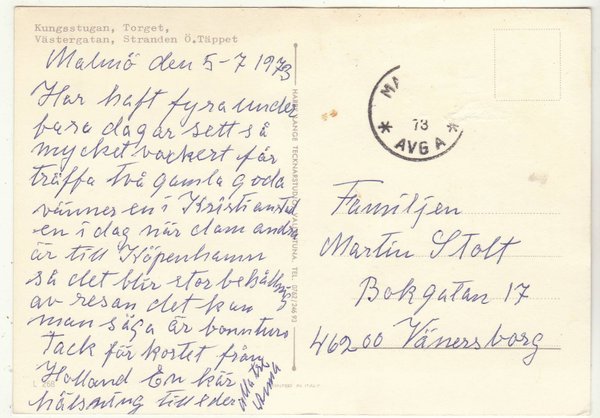 Kungsstugan, Torget,
Västergatan, Stranden Ö.Täppet
Malmö den 5-7 1973
Har haft fyra under
bara dagar sett så
mycket vackert får
träffa två gamla goda
vänner en i Kristianstad
en i dag när dom andra
är till Köpenhamn
så det blir stor behållning
av resan det kan
man säga är bonnturo
Tack för kortet från
Holland En kär
hälsning till eder
alla tre
L 268
TEL.
PRINTED IN ITALY
MA
73
* AVG A *
Familjen
Martin Stolt
Bokgatan 17
46200 Vänersborg